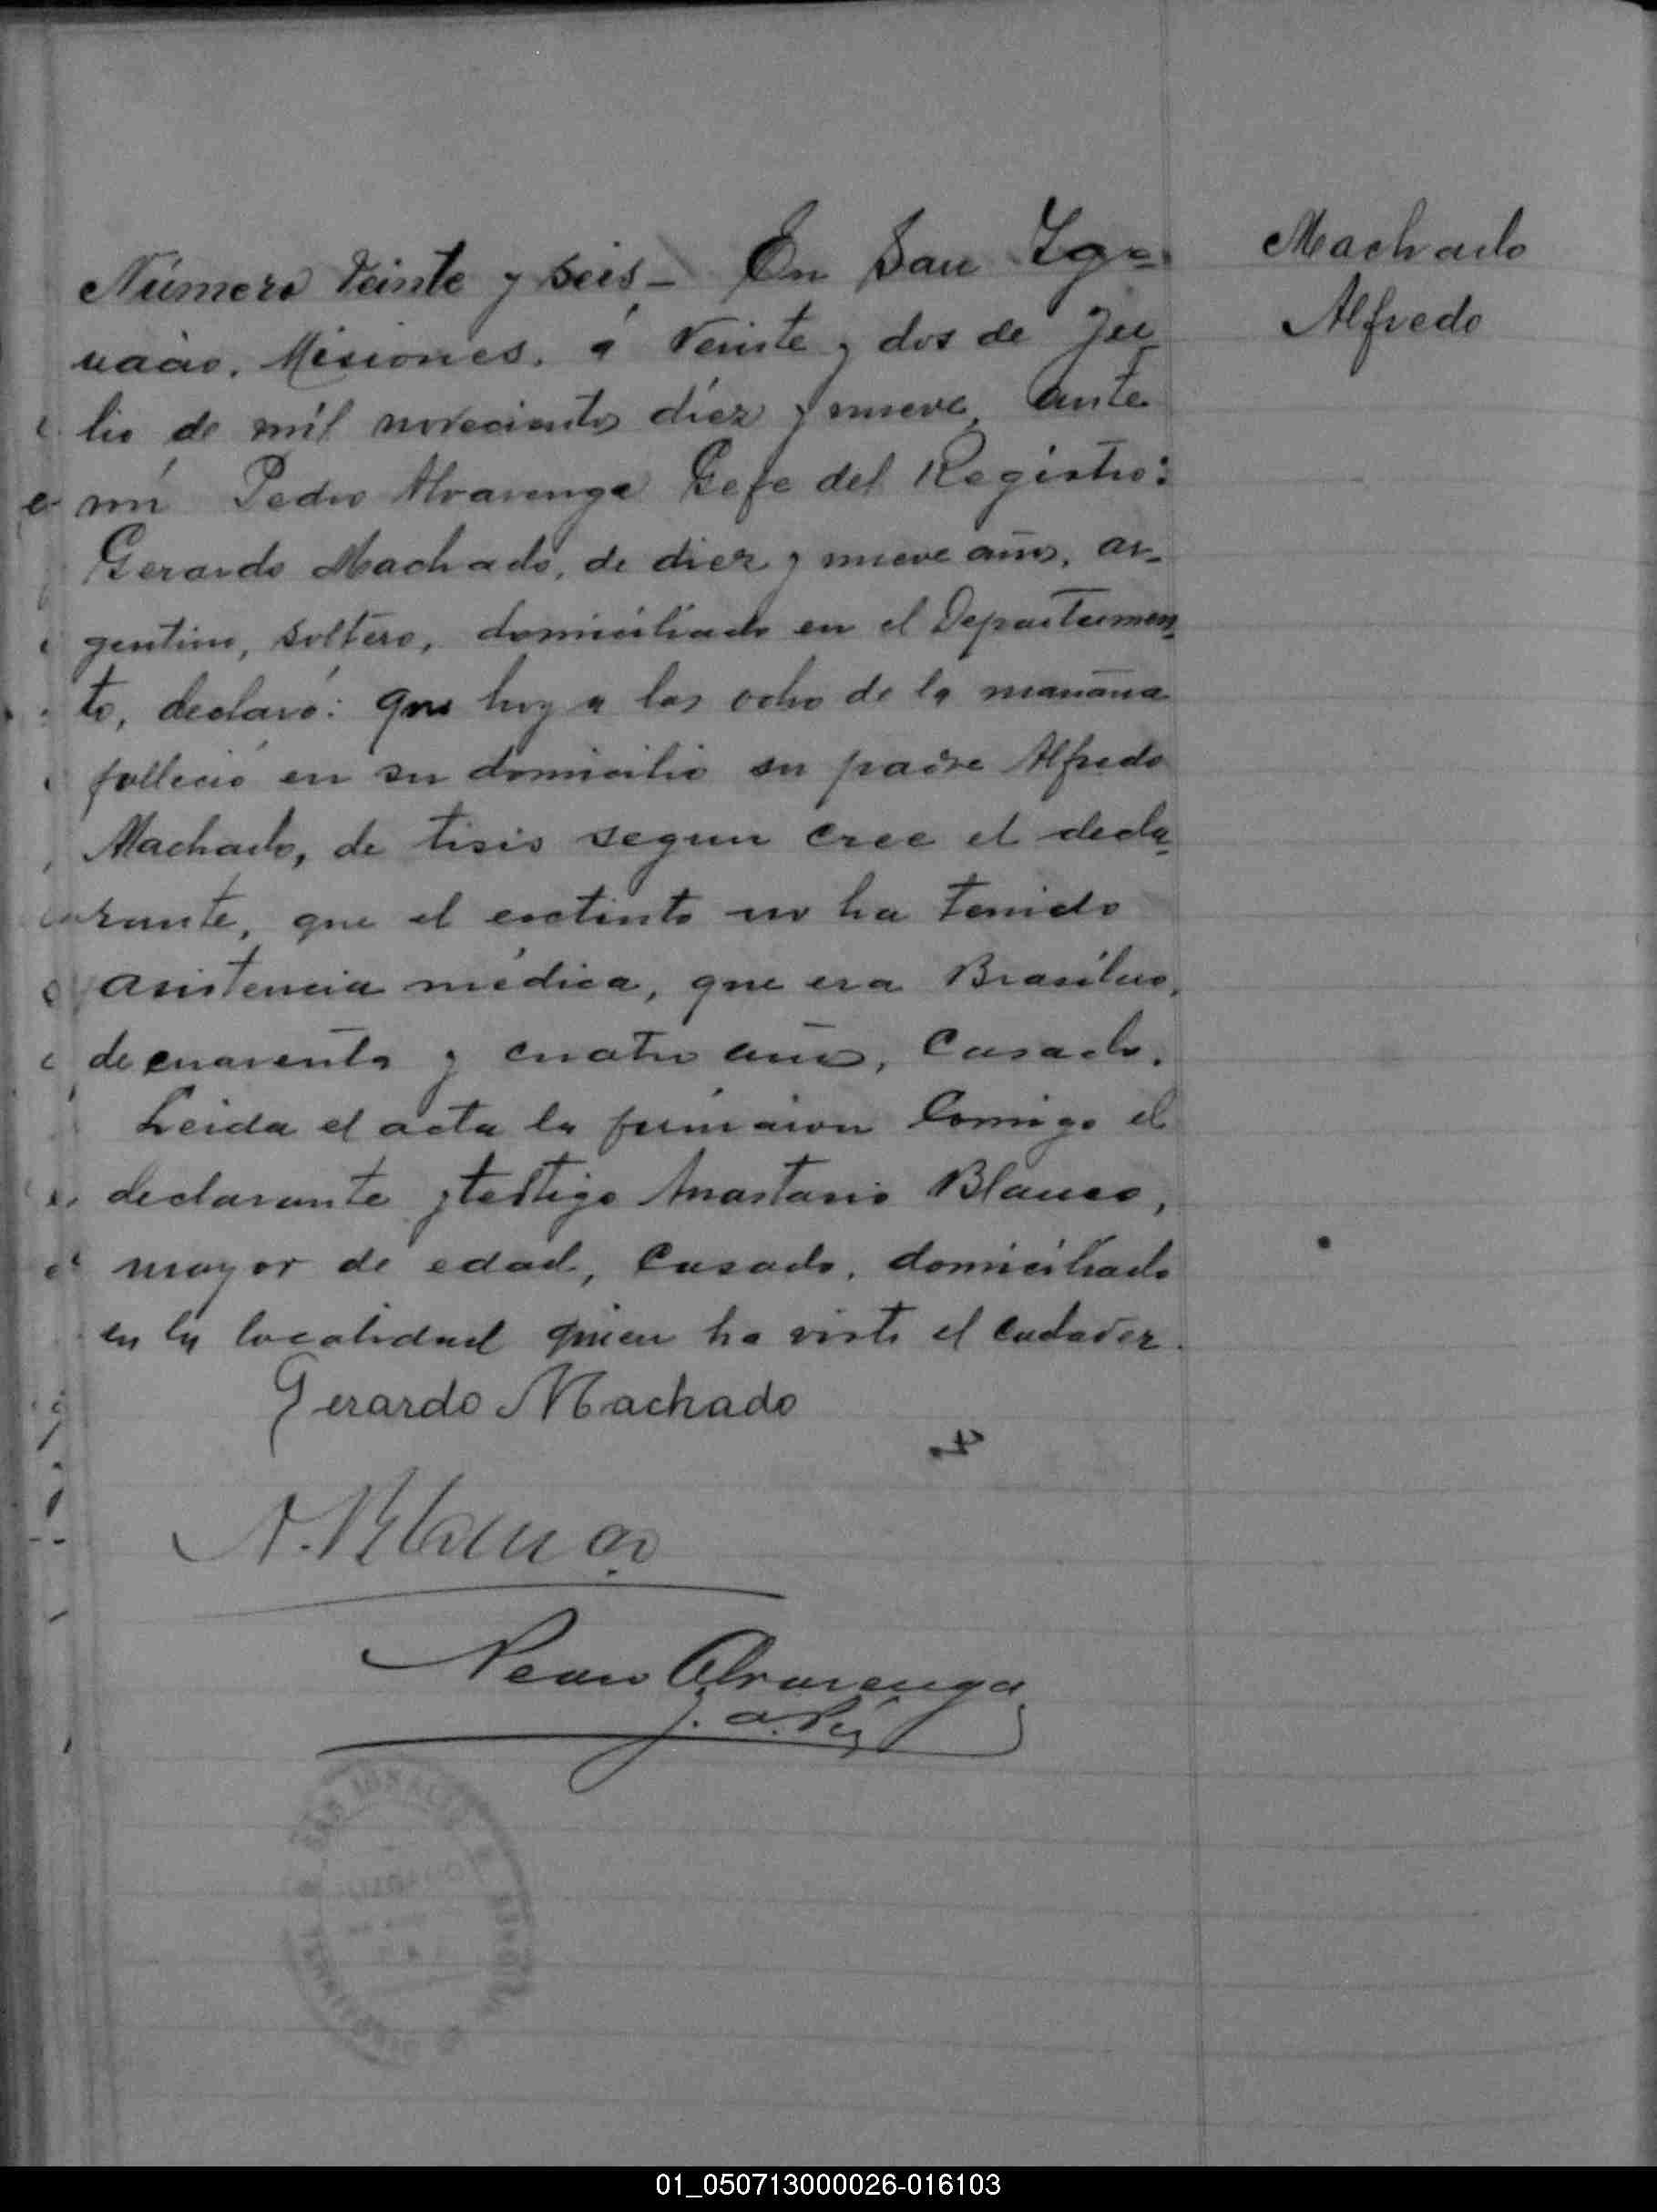 Número Veinte y seis - En San Ig-
nacio, Misiones, á Veinte y dos de Ju
lio de mil novecientos diez y nueve, ante
mi Pedro Alvarenga Gefe del Registro:
Gerardo Machado, de diez y nueve años, ar-
gentino, soltero, domiciliado en el Departamen
to, declaró: que hoy a las ocho de la mañana
falleció en su domicilio su padre Alfredo
Machado, de tisis segun cree el decla
rante, que el exctinto no ha tenido
asistencia médica, que era Brasilero,
de cuarenta y cuatro años, Casado.
Leida el acta la firmaron Comigo el
declarante y testigo Anastasio Blanco,
mayor de edad, Casado, domiciliado
en la localidad quien ha visto el Cadaver.
Gerardo Machado
A. Blanco
Pedro Alvarenga
Machado
Alfredo
SAN IGNACIO
01_050713000026-016103